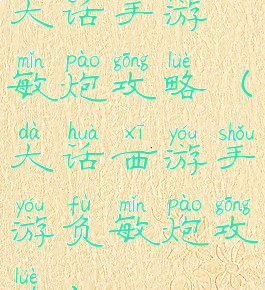 大话手游
mǐn pào gōng lüè
敏炮攻略（
dà huà xī yóu shǒu
大话西游手
yóu fù mǐn pào gōng
游负敏炮攻
lüè